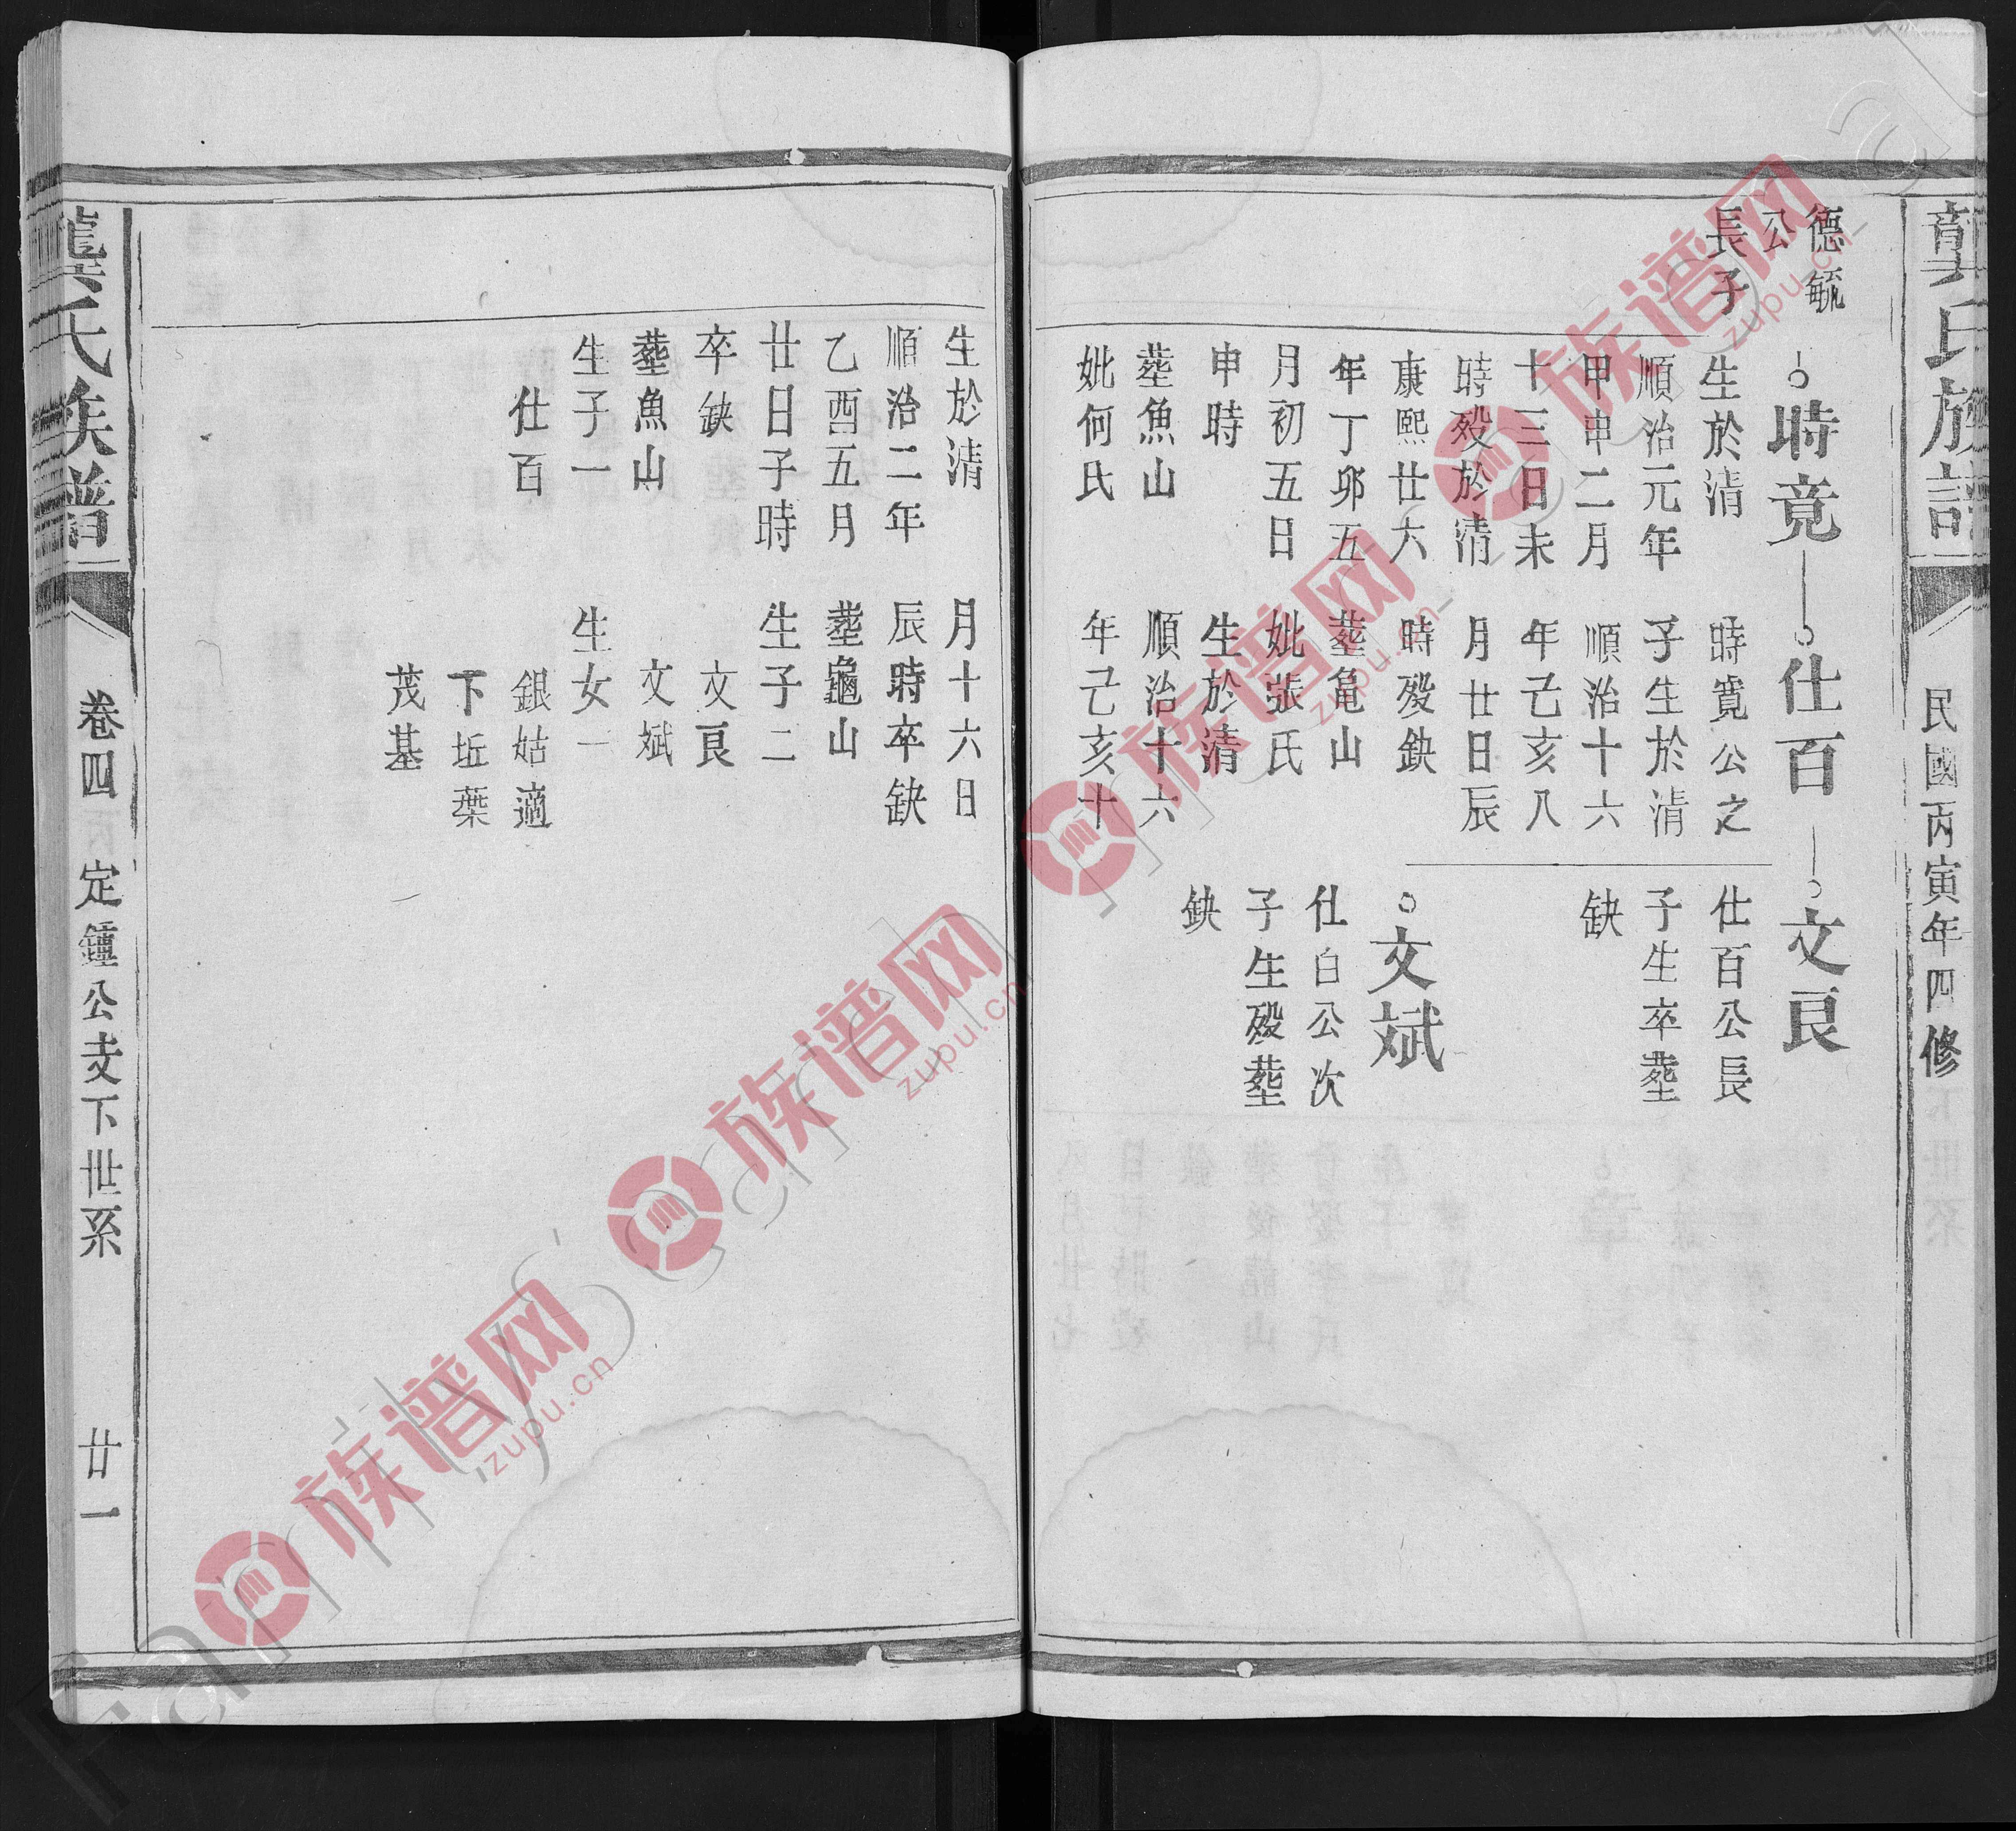 龔氏族譜
民國丙寅年四修
德毓
公
長子
時竟
生於清
順治元年
甲申二月
十三日未
時殁於清
康熙廿六
年丁卯五
月初五日
申時
塟魚山
妣何氏
仕百
時寬公之
子生於清
順治十六
年己亥八
月廿日辰
時殁缺
塟亀山
妣張氏
生於清
順治十六
年己亥十
文良
仕百公長
子生卒塟
缺
文斌
仕白公次
子生殁塟
缺
生於清
順治二年
乙酉五月
廿日子時
卒缺
塟魚山
生子一
仕百
月十六日
辰時卒缺
塟龜山
生子二
文良
文斌
生女一
銀姑適
下坵葉
茂基
龔氏族譜
卷四
定鍾公支下世系
廿一
族谱网
zupu.cn
族谱网
zupu.cn
族谱网
zupu.cn
族谱网
zupu.cn